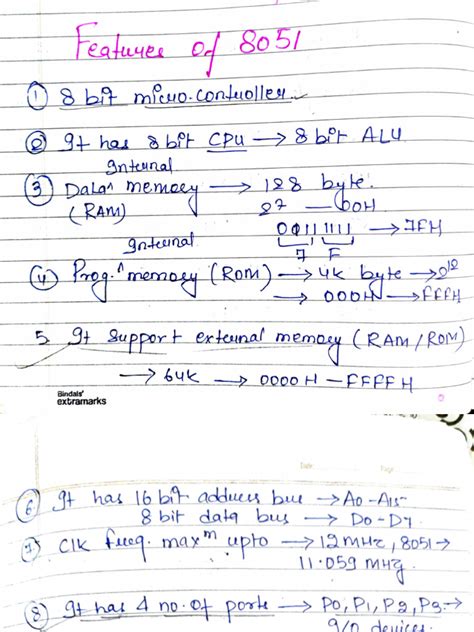 Features of 8051
① 8 bit micro-controller
② It has 8 bit CPU → 8 bit ALU
Internal
③ Data^ memory → 128 byte.
(RAM) 27 — 00H
0011 1111 → 7FH
7 F
Internal
④ Prog.^ memory (ROM) → 4K byte → 2¹²
→ 000H → FFFH
5. It support external memory (RAM/ROM)
→ 64K → 0000H – FFFFH
Bindals'
extramarks
Date
Page
⑥ It has 16 bit address bus → A0 – A15
8 bit data bus → D0 – D7.
⑦ Clk freq. maxᵐ upto → 12 MHz, 8051 →
11.059 MHz
⑧ It has 4 no. of ports → P0, P1, P2, P3 →
I/O devices.